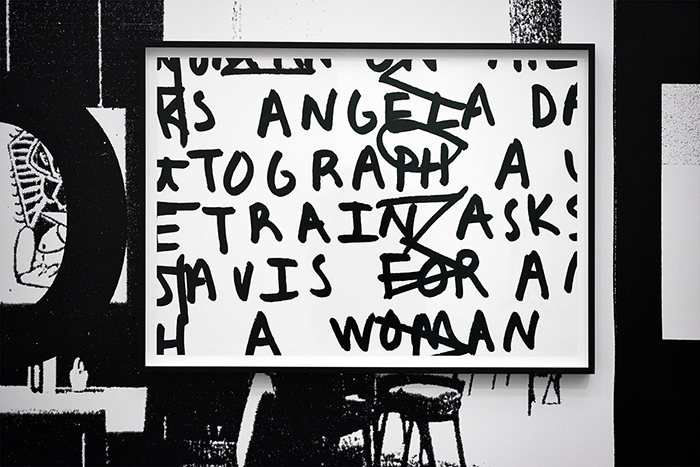 ON THE
KS ANGELA DA
TOGRAPH A
E TRAIN ASKS
DAVIS FOR A
H A WOMAN